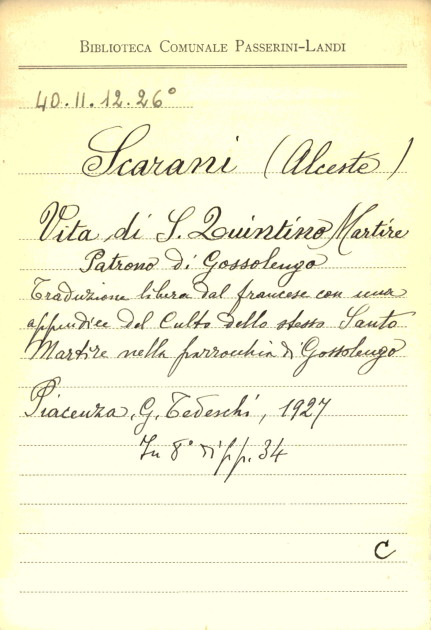 BIBLIOTECA COMUNALE PASSERINI-LANDI
40.II.12.26°
Scarani (Alceste)
Vita di S. Quintino Martire
Patrono di Gossolengo
Traduzione libera dal francese con una
appendice del Culto dello stesso Santo
Martire nella parrocchia di Gossolengo
Piacenza, G. Tedeschi, 1927
In 8° di pp. 34
C